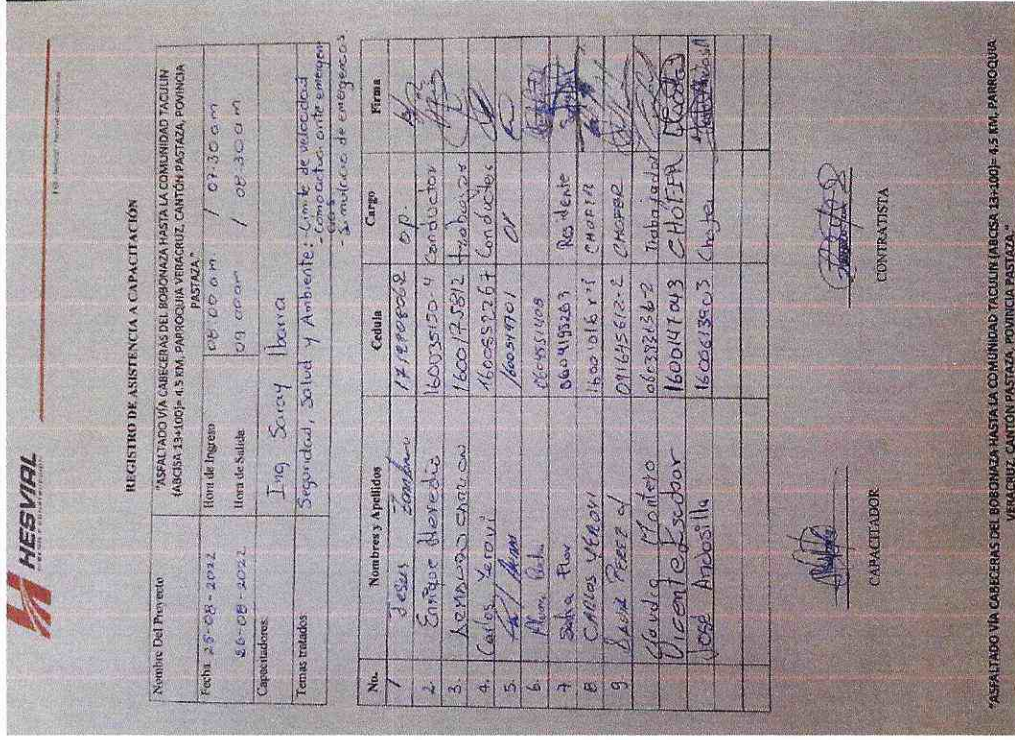 HESVIAL
REGISTRO DE ASISTENCIA A CAPACITACIÓN
Nombre Del Proyecto
"ASFALTADO VÍA CABECERAS DEL BOBONAZA HASTA LA COMUNIDAD TACULIN
(ABCISA 13+100)= 4.5 KM, PARROQUIA VERACRUZ, CANTÓN PASTAZA, POVINCIA
PASTAZA."
Fecha 25-08-2022 Hora de Ingreso 08:00 am / 07:30 am
26-08-2022 Hora de Salida 09:00 am / 08:30 am
Capacitadores Ing Saray Ibarra
Temas tratados Seguridad, Salud y Ambiente: Límite de velocidad
- Simulacro de emergencias
No. Nombres y Apellidos Cedula Cargo Firma
1 Jesus Zambrano 1719808062 op.
2 Enrique Heredia 160035130-4 Conductor
3. 1600175812 trabajador
4. Carlos Yerovi 1600552267 Conductor
5. 1600549701 op
6. 0604551408
7 Saba Flor 0604193263 Residente
8 CARLOS YEROVI CHOFER
9 DAVID PEREZ 091645612-2 CHOFER
Claudia Montero 060392136-2 Trabajador
Vicente Escobar 1600147043 CHÓFER
José Andosilla 1600613903 Chofer
CAPACITADOR
CONTRATISTA
"ASFALTADO VÍA CABECERAS DEL BOBONAZA HASTA LA COMUNIDAD TACULIN (ABCISA 13+100)= 4.5 KM, PARROQUIA
VERACRUZ, CANTÓN PASTAZA, POVINCIA PASTAZA."